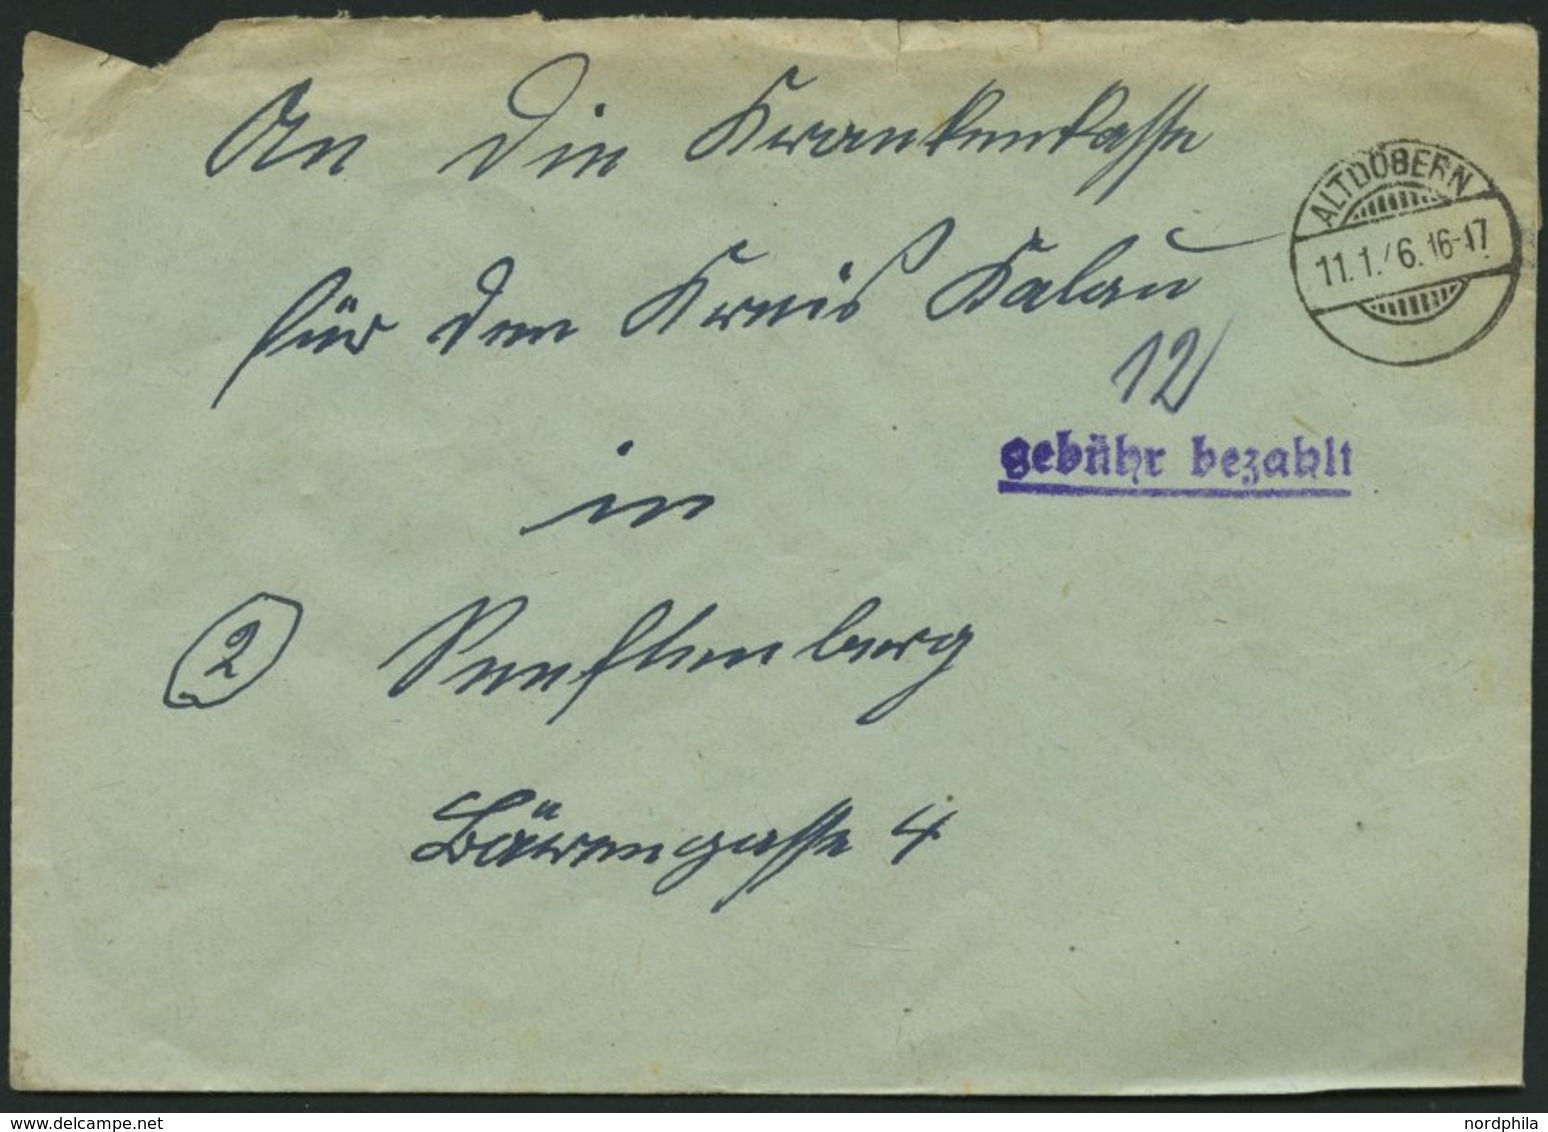 An die Krankenkasse
für den Kreis Kalau
ALTDÖBERN
11.1.46.16-17
12
gebühr bezahlt
in
2 Senftenberg
Bärengasse 4
www.delcampe.net
nordphila